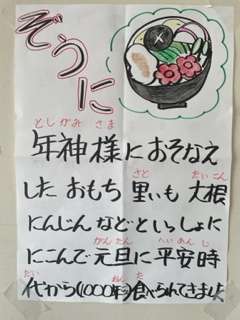 ぞうに
としがみ さま
年神様におそなえ
さと だいこん
した おもち 里いも 大根
にんじん などといっしょに
がんたん へいあん じ
にこんで 元旦に 平安時
だい ねん た
代から(1000年)食べられてきました